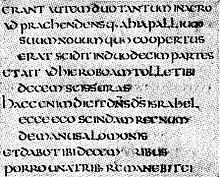 ERANT AUTEM DUO TANTUM IN AGRO
ADPRAEHENDENSQ· AHIA PALLIUM
SUUM NOUUM QUO COOPERTUS
ERAT SCIDIT IN DUODECIM PARTES
ET AIT AD HIEROBOAM TOLLE TIBI
DECEM SCISSURAS
HAEC ENIM DICIT DNS DS ISRAHEL
ECCE EGO SCINDAM REGNUM
DE MANU SALOMONIS
ET DABO TIBI DECEM TRIBUS
PORRO UNA TRIB REMANEBIT EI